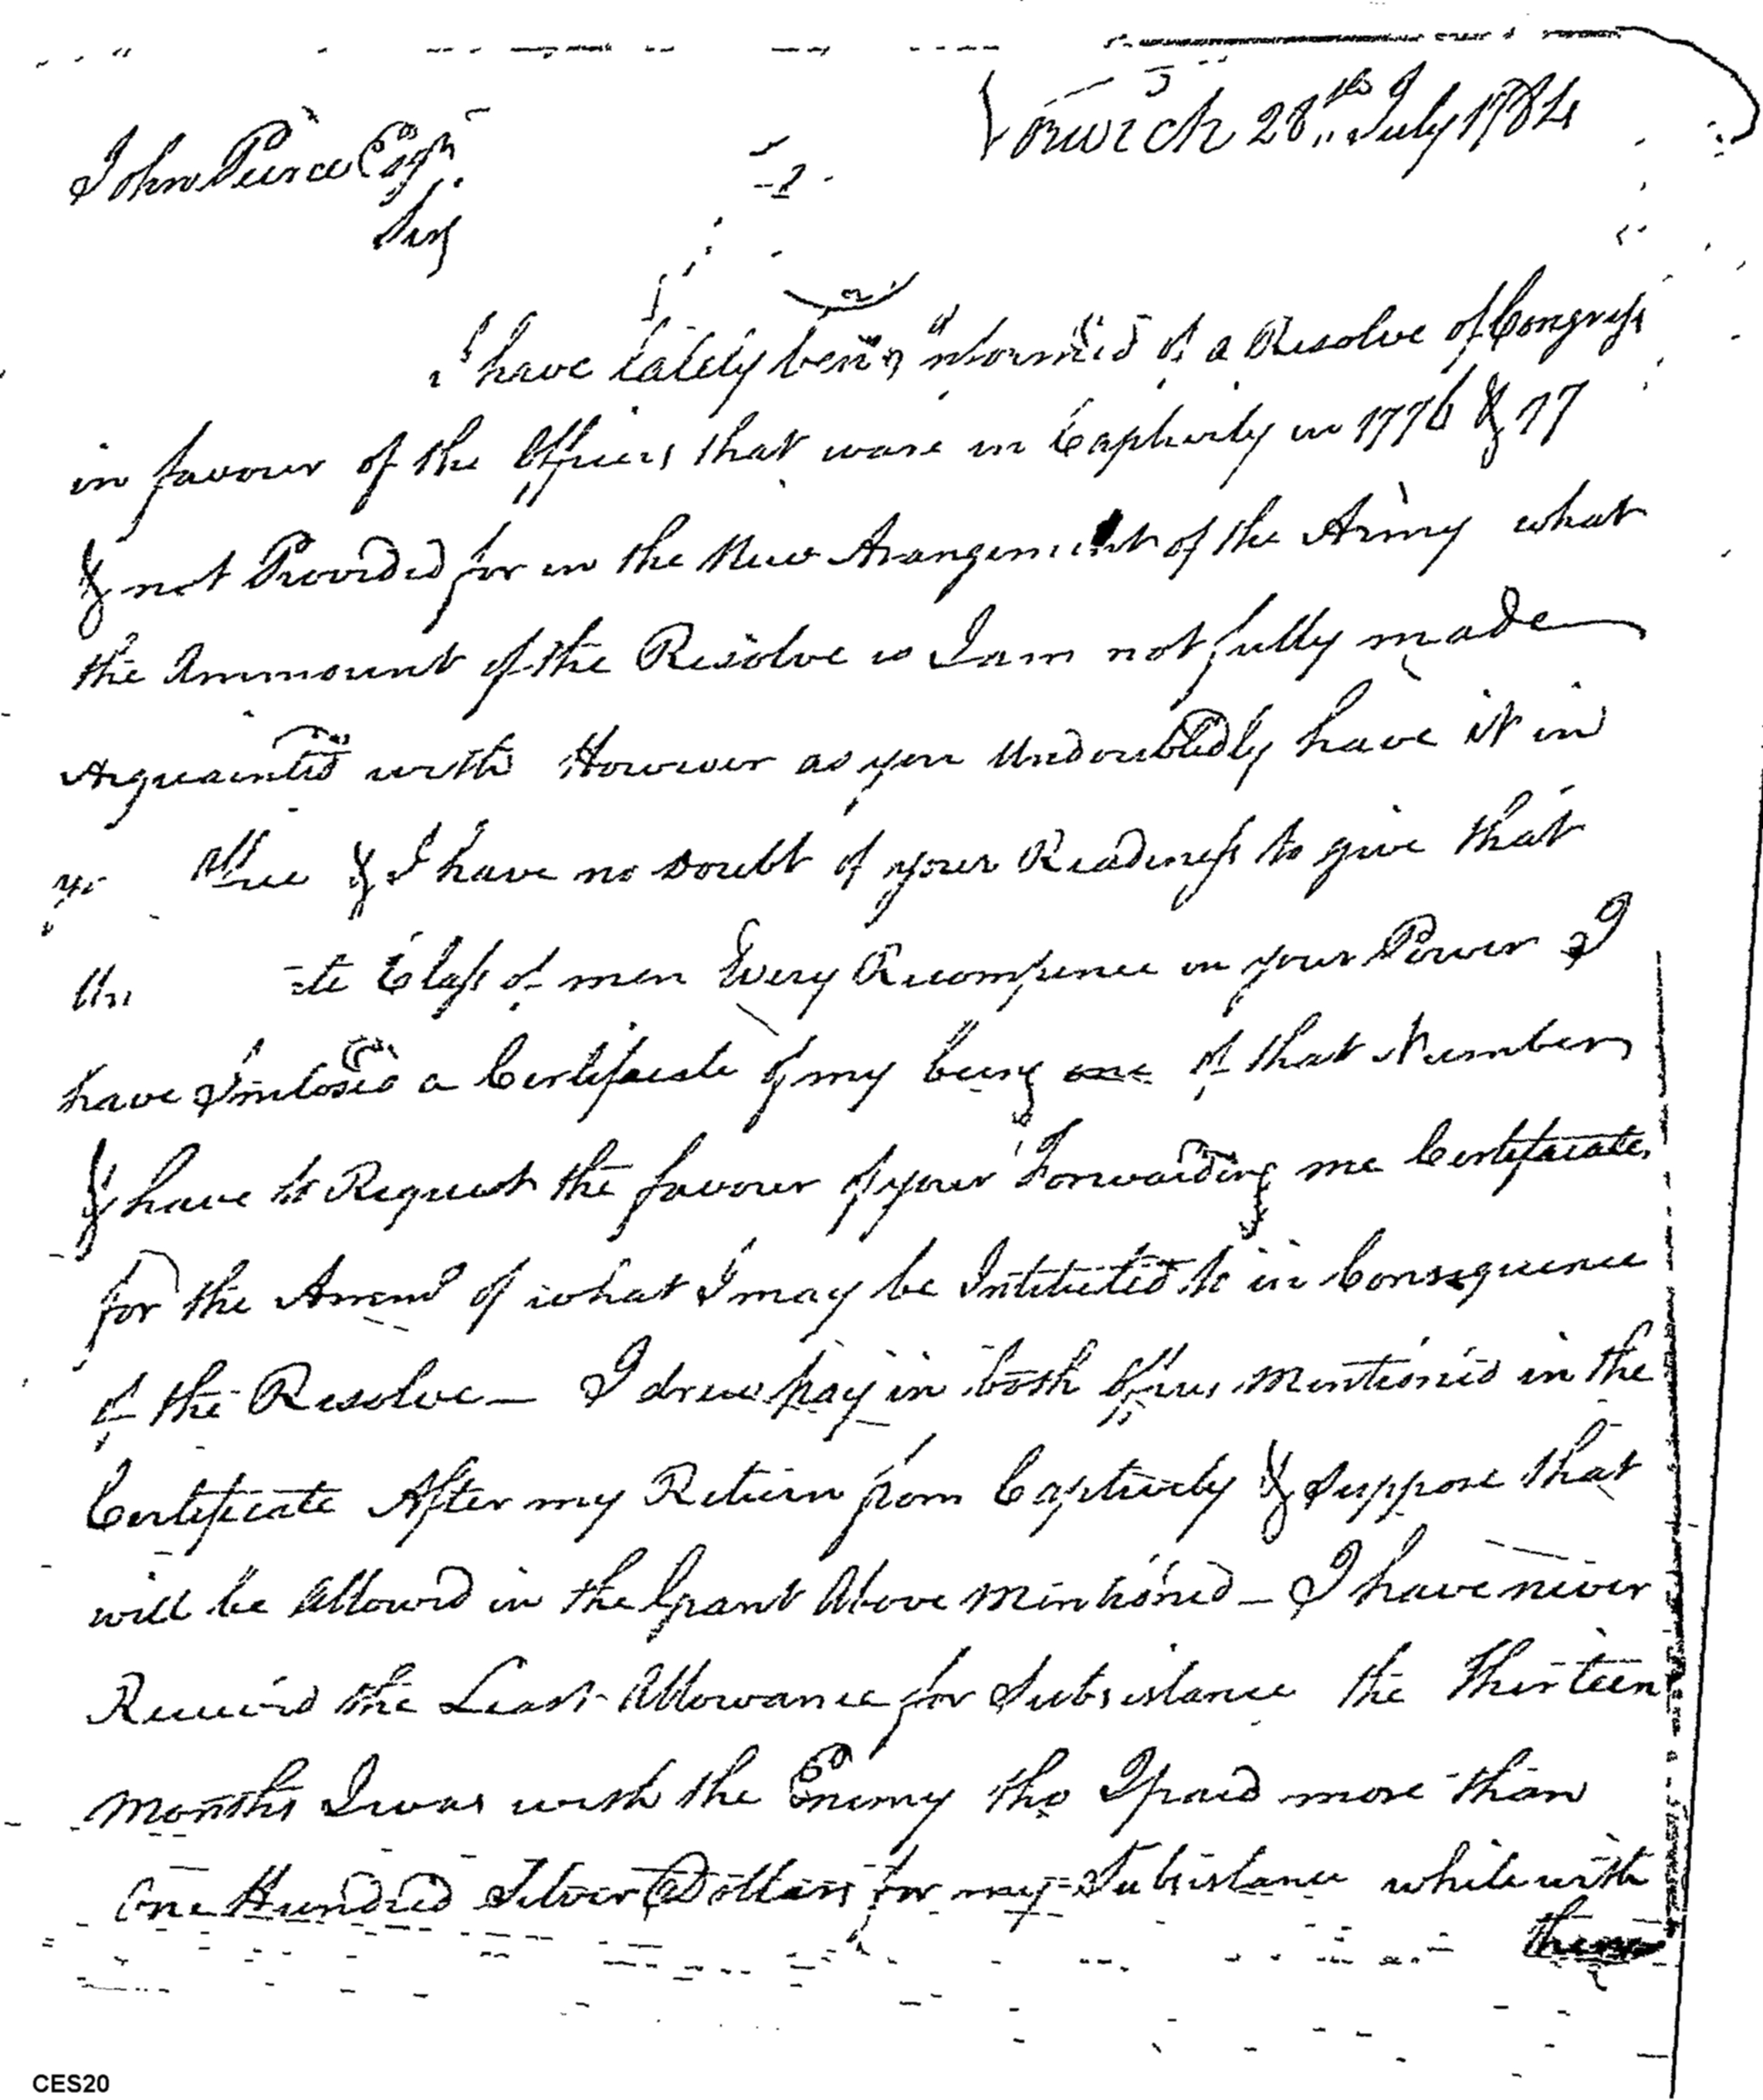 Norwich 28th July 1784
John Pierce Esqr
Sir
I have lately being informed of a Resolve of Congress
in favour of the Officers that ware in Captivity in 1776 & 77
& not Provided for in the New Arangement of the Army what
the Ammount of the Resolve is I am not fully made
Aquainted with However as you Undoubtedly have it in
& I have no doubt of your Readiness to give that
Class of men Every Recompence in your Power I
have Inclosed a Certificate of my being one of that Number
& have to Request the favour of your Forwarding me Certificate
for the Amont of what I may be Intituted to in Consequence
of the Resolve — I drew pay in both Offices Mentioned in the
Certificate After my Return from Captivity & Suppose that
will be Allowed in the Grant Above Mentioned — I have never
Received the Least Allowance for Subsistance the Thirteen
Months I was with the Enemy tho I paid more than
One Hundred Silver Dollars for my Subsistance while with
them
CES20